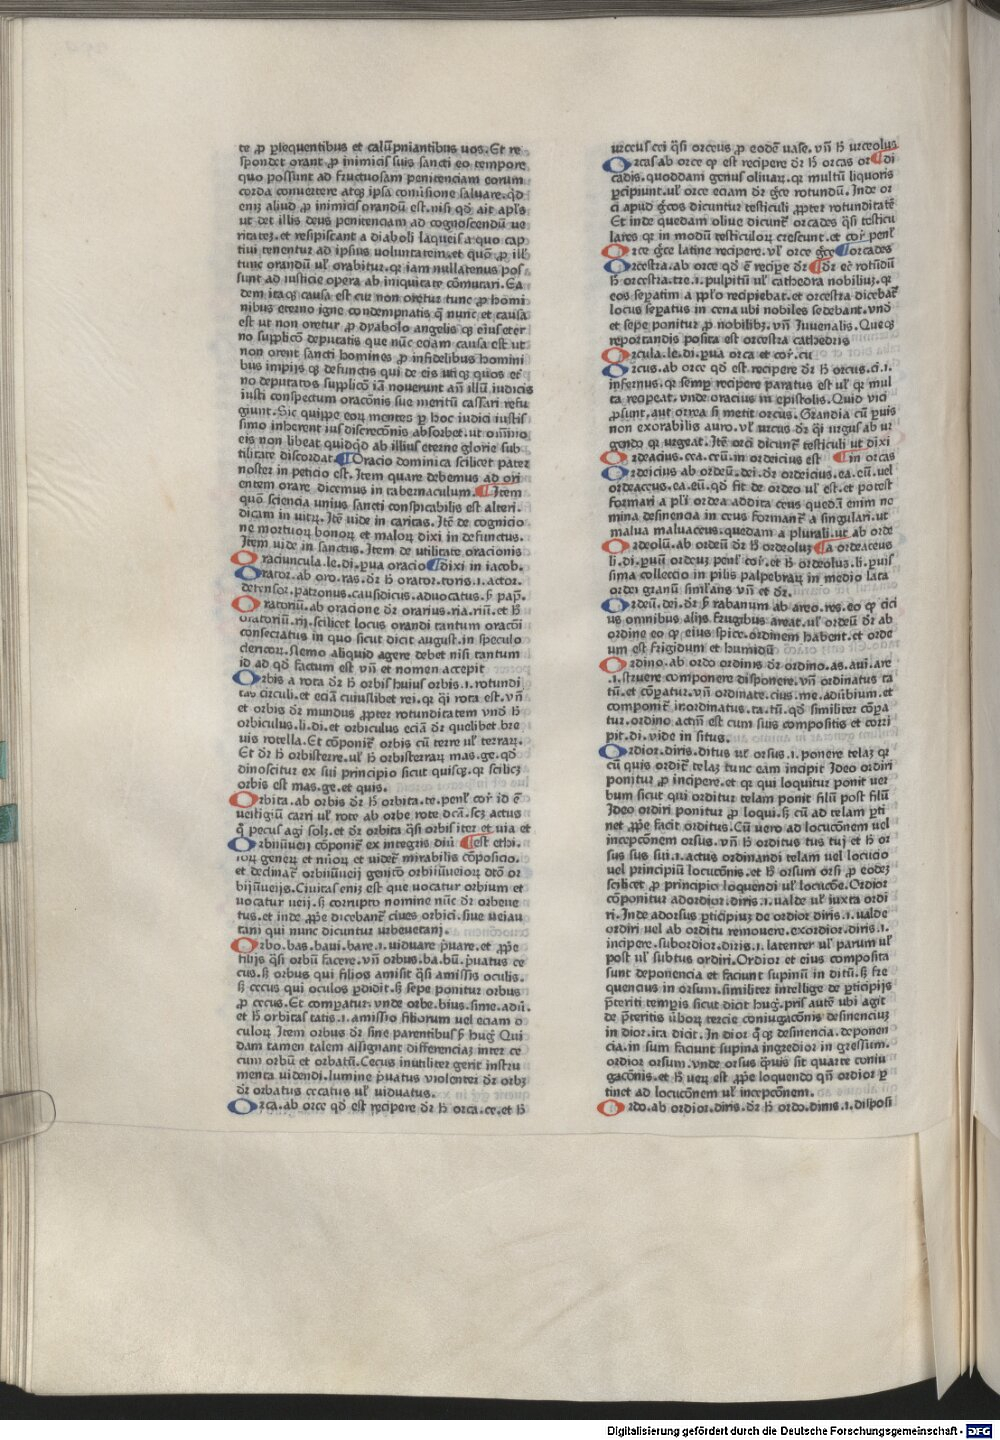 te ꝓ ꝑsequentibus et calūpniantibus uos. Et re
spondet orant ꝓ inimicis suis sancti eo tempore
quo possunt ad fructuosam penitenciam eorum
corda conuertere atqꝫ ipsa conūsione saluare. qd̄
eniꝫ aliud ꝓ inimicis orandū est. nisi qd̄ ait apl̄s
ut det illis deus penitenciam ad cognoscendū ue
ritateꝫ. et resipiscant a diaboli laqueis a quo cap
tiui tenentur ad ipsius uoluntatem. et quō ꝓ ill̄
tunc orandū ul̄ orabitur. qꝛ iam nullatenus pos
sunt ad iusticie opera ab iniquitate cōmutari. Ea
dem itaqꝫ causa est cur non oretur tunc ꝓ homi
nibus eterno igne condempnatis q̄ nunc et causa
est ut non oretur ꝓ dyabolo angelis qꝫ eius eter
no supplicō deputatis que nūc eciam causa est ut
non orent sancti homines ꝓ infidelibus homini
bus impijs qꝫ defunctis qui de eis utiqꝫ quos et̄
no deputatos supplicō iā nouerunt an̄ illū iudicis
iusti conspectum oracōnis sue meritū cassari refu
giunt. Sic quippe eoꝝ mentes ꝑ hoc iudici iustis
simo inherent ius discrecōnis absorbet. ut om̄ino
eis non libeat quidqd̄ ab illius eterne glorie sub
tilitate discordat. ¶ Oracio dominica scilicet pater
noster in peticio est. Item quare debemus ad ori
entem orare dicemus in tabernaculum. ¶ Item
quō sciencia unius sancti conspicabilis est alteri.
dicam in uitꝝ. Itē uide in caritas. Itē de cognicio
ne mortuoꝝ bonoꝝ et maloꝝ dixi in defunctus.
Item uide in sanctus. Item de utilitate oracionis
Oraciuncula. le. di. ꝑua oracio ¶ dixi in iacob.
Orator. ab oro. ras. dꝛ h̄ orator. toris. i. actor.
defensor. patronus. causidicus. aduocatus. ẜ pap̄.
Oratoriū. ab oracione dꝛ orarius. ria. riū. et h̄
oratoriū. rij. scilicet locus orandi tantum oracōi
consecratus in quo sicut dicit august. in speculo
clericoꝝ. Nemo aliquid agere debet nisi tantum
id ad qd̄ factum est vn̄ et nomen accepit
Orbis a rota dꝛ h̄ orbis huius orbis. i. rotundi
tas circuli. et eciā cuiuslibet rei. qꝛ q̄i rota est. vn̄
et orbis dꝛ mundus ꝓpter rotunditatem vnd̄ h̄
orbiculus. li. di. et orbiculus eciā dꝛ quelibet bre
uis rotella. Et cōponit᷑ orbis cū terre ul̄ terraꝝ.
Et dꝛ h̄ orbisterre. ul̄ h̄ orbisterraꝝ mas. ge. qd̄
dinoscitur ex sui principio sicut quisqꝫ. qꝛ scilicꝫ
orbis est mas. ge. et quis.
Orbita. ab orbis dꝛ h̄ orbita. te. penl̄ cor̄ id ē
uestigiū carri ul̄ rote ab orbe rote dcā. scꝫ actus
q̄ pecus agi solꝫ. et dꝛ orbita q̄si orbis iter et uia et
Orbiuueij cōponit᷑ ex integris diū ¶ est ethi.
ioꝝ generꝝ et nūoꝝ et uidet᷑ mirabilis cōposicio.
et declinat᷑ orbiiūueij genitō orbiiūueioꝝ dtō or
bijūueijs. Ciuitas eniꝫ est que uocatur orbium et
uocatur ueij. ẜ corrupto nomine nūc dꝛ orbeue
tus. et inde ꝓpe dicebant᷑ ciues orbici. siue ueiau
tani qui nunc dicuntur urbeuetani.
Orbo. bas. baui. bare. i. uiduare ꝓuare. et ꝓpe
filijs q̄si orbū facere. vn̄ orbus. ba. bū. ꝓuatus ce
cus. ẜ orbus qui filios amisit q̄si amissis oculis.
ẜ cecus qui oculos ꝑdidit. ẜ sepe ponitur orbus
ꝓ cecus. Et comꝑatur. vnde orbe. bius. sime. adū.
et h̄ orbitas tatis. i. amissio filiorum uel eciam o
culoꝝ. Item orbus dꝛ sine parentibus ẜ hug̓. Qui
dam tamen talem assignant differenciaꝫ inter ce
cum orbū et orbatū. Cecus inutiliter gerit instru
menta uidendi. lumine ꝓuatus uiolenter dꝛ orbꝫ
dꝛ orbatus cecatus ul̄ uiduatus.
Orca. ab orce qd̄ est recipere dꝛ h̄ orca. ce. et h̄
urceus cei q̄si orceus ꝓ eodē uase. vn̄ h̄ urceolus
Orcas ab orce qd̄ est recipere dꝛ h̄ orcas or ¶ di
cadis. quoddani genus oliuaꝝ. qꝛ multū liquoris
ꝑcipiunt. ul̄ orce eciam dꝛ gꝛce rotundū. Inde or
ci apud gꝛcos dicuntur testiculi ꝓpter rotunditatē
Et inde quedam oliue dicunt᷑ orcades q̄si testicu
lares qꝛ in modū testiculoꝝ crescunt. et cor̄ penl̄
Orce gꝛce latine recipere. ul̄ orce gꝛce ¶ orcades
Orcestra. ab orce qd̄ ē recipe dꝛ ¶ dꝛ ec̄ rotūdū
h̄ orcestra. tre. i. pulpitū ul̄ cathedra nobiliuꝫ. qꝛ
eos sepatim a ꝓpl̄o recipiebat. et orcestra dicebat᷑
locus sepatus in cena ubi nobiles sedebant. vnd̄
et sepe ponitur ꝓ nobilibꝫ. vn̄ Juuenalis. Queqꝫ
reportandis posita est orcestra cathedris
Orcula. le. di. ꝑua orca et cor̄. cu
Orcus. ab orce qd̄ est. recipere dꝛ h̄ orcus. ci. i.
infernus. qꝛ semꝑ recipere paratus est ul̄ qꝛ mul
ta recipeat. vnde oracius in epistolis. Quid vici
ꝓsunt. aut orrea si metit orcus. Grandia cū ꝑuis
non exorabilis auro. ul̄ urcus dꝛ q̄i urgus ab ur
gendo qꝛ urgeat. Itē orci dicunt᷑ testiculi ut dixi
Ordeacius. cea. ceū. in ordeicius est ¶ in orcas
Ordeicius ab ordeū. dei. dꝛ ordeicius. ea. eū. uel
ordeaceus. ea. eū. qd̄ fit de ordeo ul̄ est. et potest
formari a pl̄i ordea addita ceus quedā enim no
mina desinencia in ceus formant᷑ a singulari. ut
malua maluaceus. quedam a plurali. ut ab orde
Ordeolū. ab ordeū dꝛ h̄ ordeoluꝫ ¶ a ordeaceus
li. di. ꝑuū ordeuꝫ penl̄ cor̄. et h̄ ordeolus. li. ꝑuis
sima colleccio in pilis palpebraꝝ in medio lata
ordei granū simil̄ans vn̄ et dꝛ.
Ordeū. dei. dꝛ ẜ rabanum ab areo. res. eo qꝫ cici
us omnibus alijs frugibus areat. ul̄ ordeū dꝛ ab
ordine eo qꝫ eius spice. ordinem habent. et orde
um est frigidum et humidū
Ordino. ab ordo ordinis dꝛ ordino. as. aui. are
. i. struere componere disponere. vn̄ ordinatus ta
tū. et cōꝑatur. vn̄ ordinate. cius. me. adūbium. et
componit᷑ inordinatus. ta. tū. qd̄ similiter cōꝑa
tur. ordino actiū est cum suis compositis et corri
pit. di. vide in situs.
Ordior. diris. ditus ul̄ orsus. i. ponere telaꝫ qꝛ
cū quis ordit᷑ telaꝫ tunc eam incipit Ideo ordiri
ponitur ꝓ incipere. et qꝛ qui loquitur ponit uer
bum sicut qui orditur telam ponit filū post filū
Ideo ordiri ponitur ꝓ loqui. ẜ cū ad telam ꝑti
net ꝓpe facit orditus. Cū uero ad locucōnem uel
incepcōnem orsus. vn̄ h̄ orditus tus tuj et h̄ or
sus sus sui. i. actus ordinandi telam uel locucio
uel principiū locucōnis. et h̄ orsum orsi ꝓ eodeꝫ
scilicet ꝓ principio loquendi ul̄ locucōe. Ordior
cōponitur adordior. diris. i. ualde ul̄ iuxta ordi
ri. Inde adorsus ꝑticipiuꝫ de ordior diris. i. ualde
ordiri uel ab orditu remouere. exordior. diris. i.
incipere. subordior. diris. i. latenter ul̄ parum ul̄
post ul̄ subtus ordiri. Ordior et eius composita
sunt deponencia et faciunt supinū in ditū. ẜ fre
quencius in orsum. similiter intellige de ꝑticipijs
p̄teriti tempis sicut dicit hug̓. pris autē ubi agit
de p̄teritis ūboꝝ tercie coniugacōnis desinenciuꝫ
in dior. ita dicit. In dior q̄qꝫ desinencia. deponen
cia. in sum faciunt supina ingredior in gressum.
ordior orsum. vnde orsus q̄uis sit quarte coniu
gacōnis. et h̄ ueꝝ est ꝓpe loquendo qn̄ ordior ꝑ
tinet ad locucōnem ul̄ incepcōnem.
Ordo. ab ordior. diris. dꝛ h̄ ordo. dinis. i. disposi
Digitalisierung gefördert durch die Deutsche Forschungsgemeinschaft - DFG